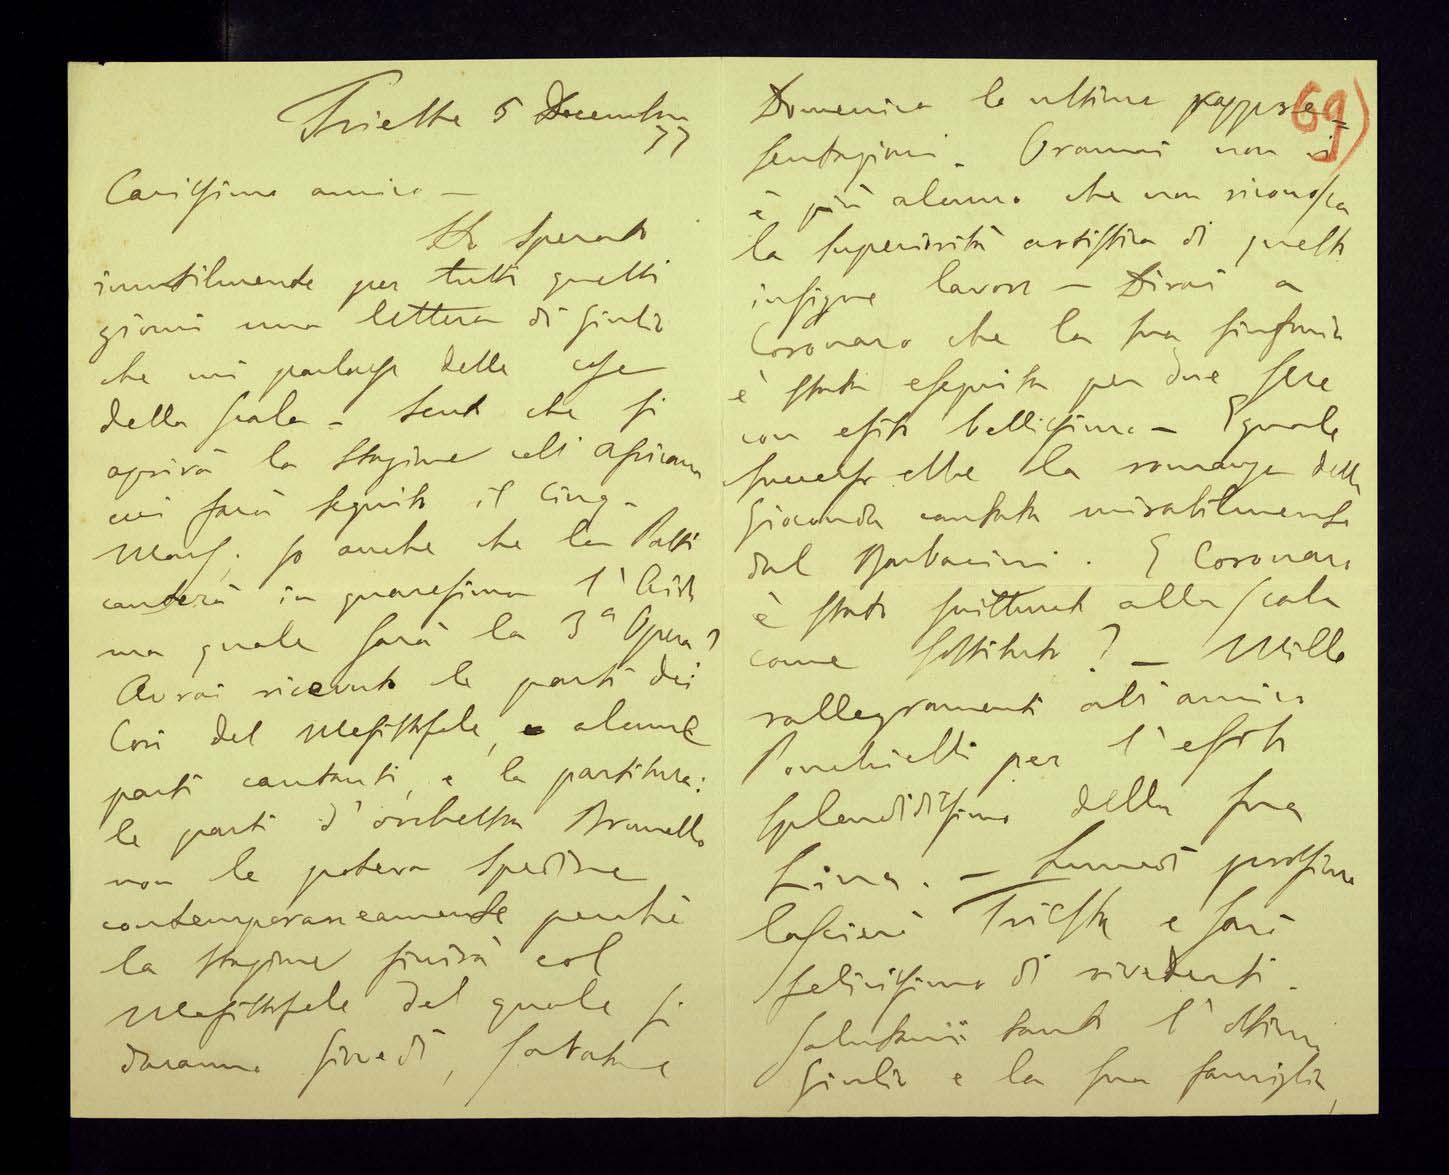 Trieste 5 Decembre
77
Carissimo amico —
Ho sperato
inutilmente per tutti questi
giorni una lettera di Giulio
che mi parlasse delle cose
della Scala – Sento che si
aprirà la stagione coll'Africana
cui farà seguito il Cinq-
Mars; so anche che la Patti
canterà in quaresima l'Aida
ma quale sarà la 3ª Opera?
Avrai ricevuto le parti dei
Cori del Mefistofele, e alcune
parti cantanti, e la partitura:
le parti d'orchestra Brunello
non le poteva spedire
contemporaneamente perchè
la stagione finirà col
Mefistofele del quale si
daranno Giovedì, Sabato e
Domenica le ultime rappre=
sentazioni. Oramai non vi
è più alcuno che non riconosca
la superiorità artistica di questo
insigne lavoro — Dirai a
Coronaro che la sua sinfonia
è stata eseguita per due sere
con esito bellissimo — Eguale
successo ebbe la romanza della
Gioconda cantata mirabilmente
dal Barbacini. E Coronaro
è stato scritturato alla Scala
come sostituto? — Mille
rallegramenti all'amico
Ponchielli per l'esito
splendidissimo della sua
Lina. — Lunedì prossimo
lascierò Trieste e sarò
felicissimo di rivederti.
Salutami tanto l'ottimo
Giulio e la sua famiglia,
69)